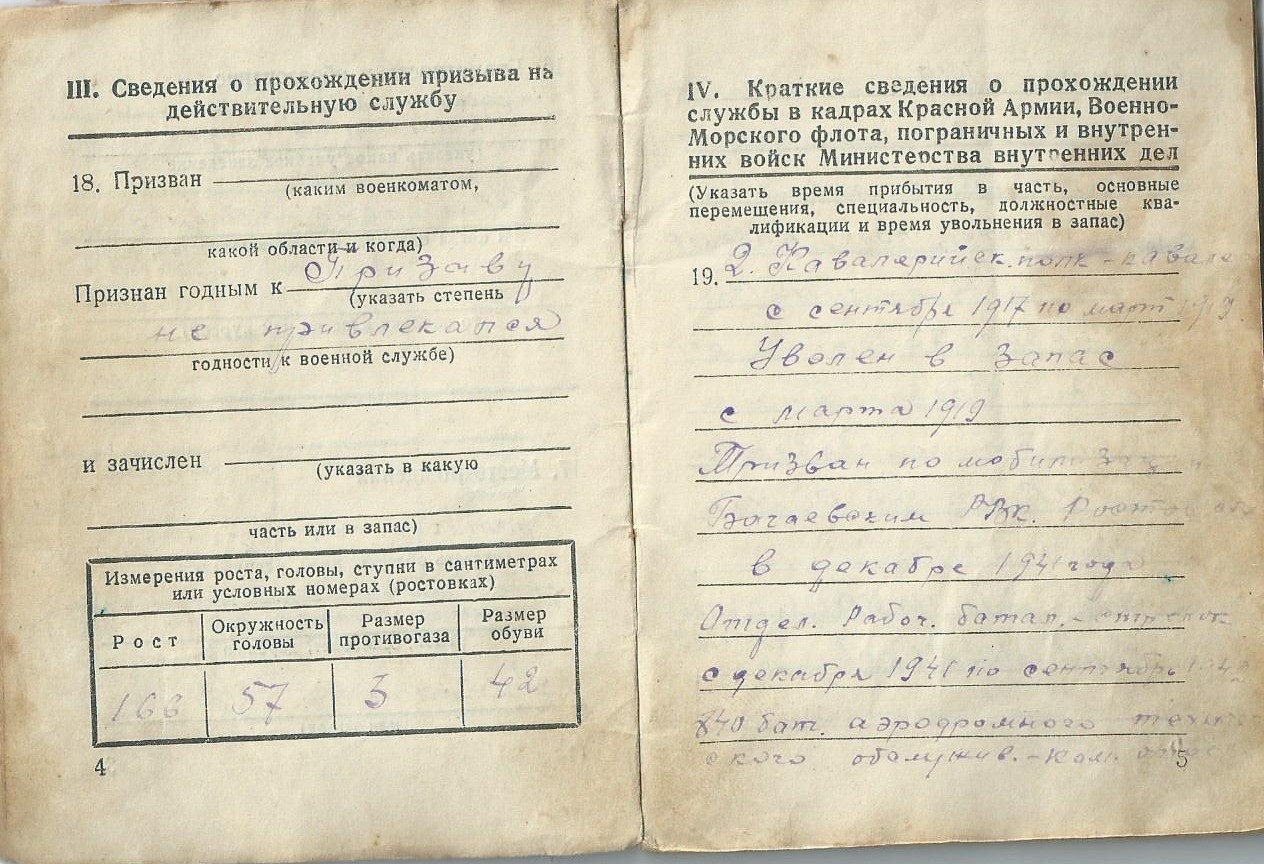 III. Сведения о прохождении призыва на
действительную службу
18. Призван
(каким военкоматом,
какой области и когда)
Призыву
Признан годным к
(указать степень
не привлекался
годности к военной службе)
и зачислен
(указать в какую
часть или в запас)
Измерения роста, головы, ступни в сантиметрах
или условных номерах (ростовках)
Рост
Окружность
головы
Размер
противогаза
Размер
обуви
57 3 42
4
IV. Краткие сведения о прохождении
службы в кадрах Красной Армии, Военно-
Морского флота, пограничных и внутрен-
них войск Министерства внутренних дел
(Указать время прибытия в часть, основные
перемещения, специальность, должностные ква-
лификации и время увольнения в запас)
19. 2. Кавалерийск. полк -
с сентября 1917 по март 1919
Уволен в запас
с марта 1919
Призван по
РВК.
в декабре 1941 года
Отдел. Рабоч. батал. -
с декабря 1941 по сентябрь
840 бат. аэродромного
обслужив. - ком.
5